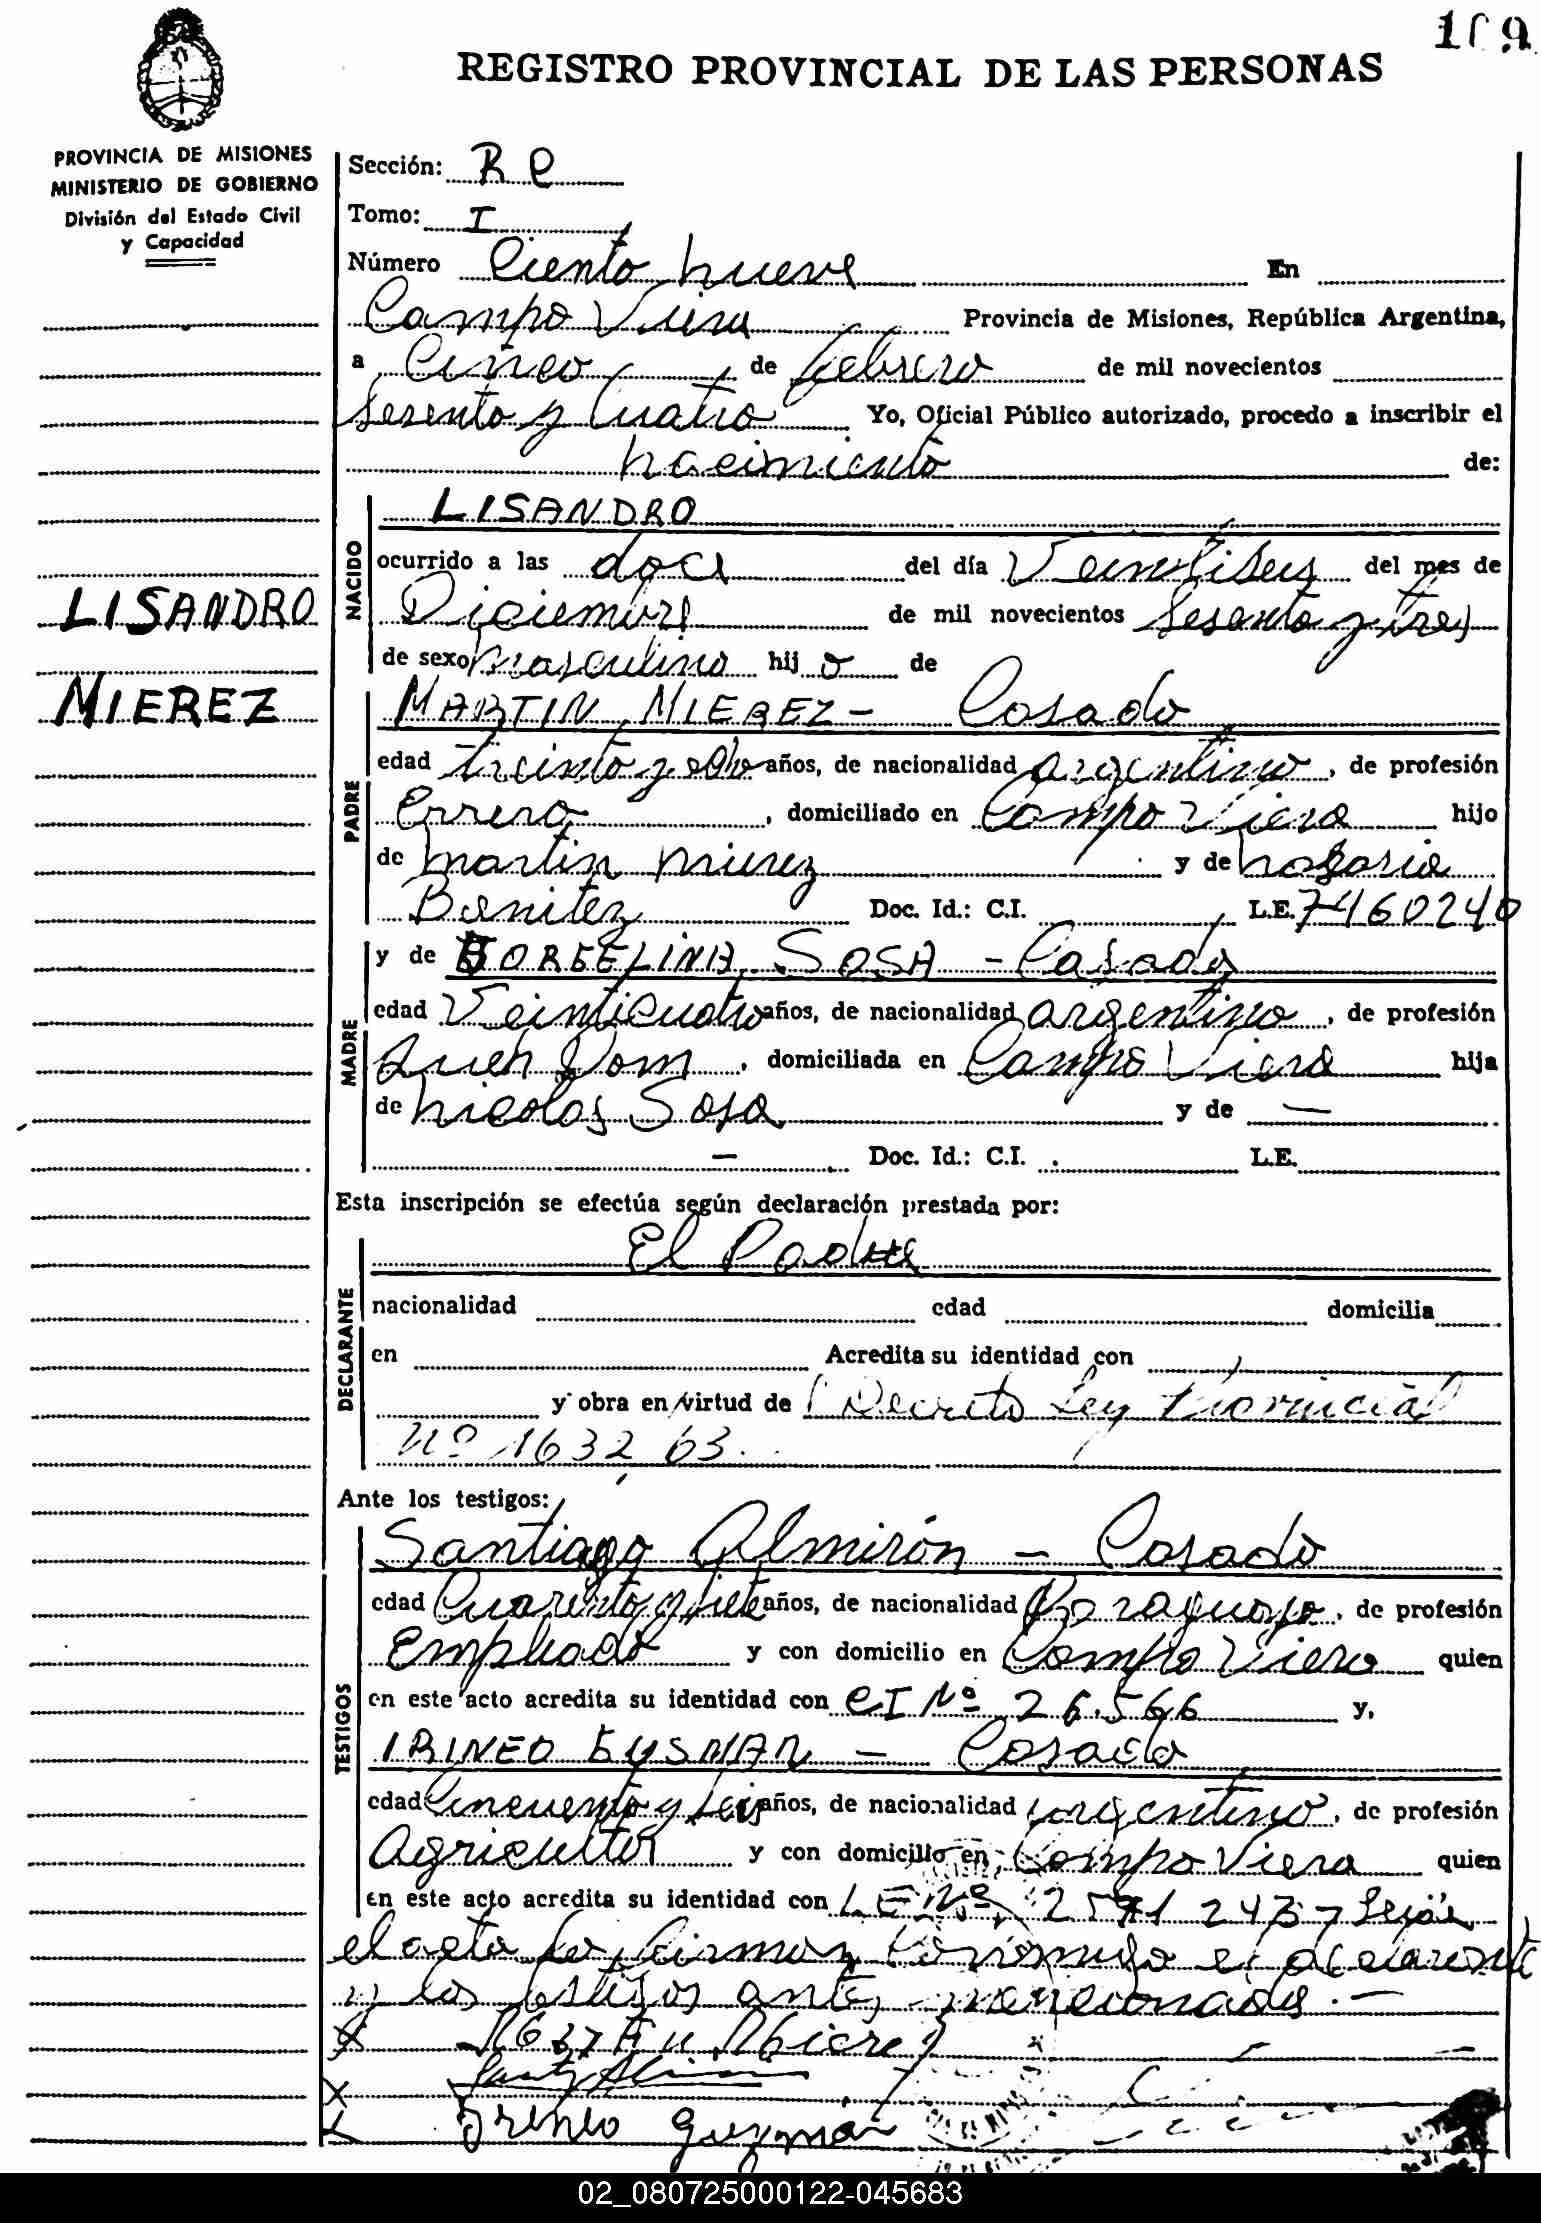 109
REGISTRO PROVINCIAL DE LAS PERSONAS
PROVINCIA DE MISIONES
MINISTERIO DE GOBIERNO
División del Estado Civil
y Capacidad
Sección: R P
Tomo: I
Número Ciento nueve En
Campo Viera Provincia de Misiones, República Argentina,
a Cinco de febrero de mil novecientos
Sesenta y Cuatro Yo, Oficial Público autorizado, procedo a inscribir el
nacimiento de:
NACIDO
LISANDRO
ocurrido a las doce del día Veintiseis del mes de
LISANDRO
Diciembre de mil novecientos Sesenta y tres
de sexo masculino hijo de
MIEREZ
PADRE
MARTIN MIEREZ - Casado
edad treinta y ocho años, de nacionalidad argentino, de profesión
Errero, domiciliado en Campo Viera hijo
de Martin Mierez y de Rosaria
Benitez Doc. Id.: C.I. L.E. 7460240
MADRE
y de SOSA - Casada
edad Veinticuatro años, de nacionalidad argentino, de profesión
Queh Dom, domiciliada en Campo Viera hija
de Nicolas Sosa y de —
— Doc. Id.: C.I. L.E.
Esta inscripción se efectúa según declaración prestada por:
DECLARANTE
El Padre
nacionalidad edad domicilia
en Acredita su identidad con
y obra en virtud de Decreto Ley Provincial
Nº 1632 63.
Ante los testigos:
TESTIGOS
Santiago Almirón - Casado
edad Cuarenta y siete años, de nacionalidad Paraguayo, de profesión
Empleado y con domicilio en Campo Viera quien
en este acto acredita su identidad con CI Nº 26.566 y,
IRINEO GUSMAN - Casado
edad Cincuenta y seis años, de nacionalidad argentino, de profesión
Agricultor y con domicilio en Campo Viera quien
en este acto acredita su identidad con L E Nº 2571 2437 Leida
el acta la firman conmigo el declarante
y los testigos antes mencionados.—
Irineo Guzmán
02_080725000122-045683